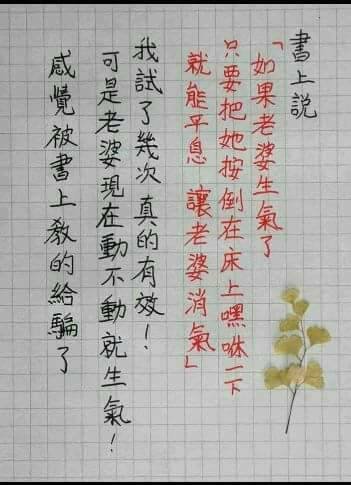 書上說
「如果老婆生氣了
只要把她按倒在床上嘿咻一下
就能平息 讓老婆消氣」
我試了幾次真的有效！
可是老婆現在動不動就生氣！
感覺被書上教的給騙了